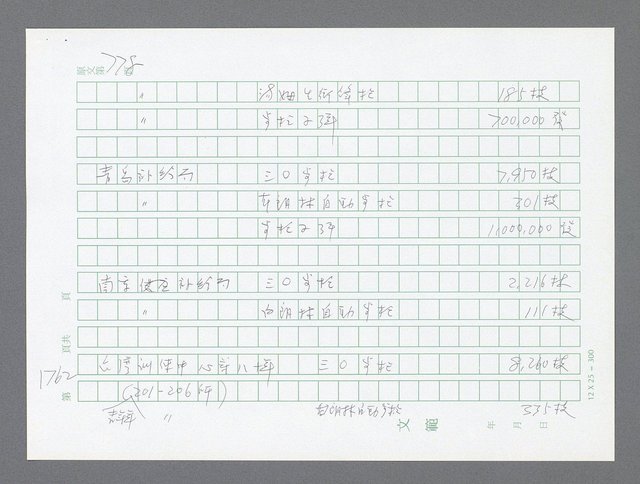 原文第778頁
〃 湯姆生衝鋒槍 185枝
〃 步槍子彈 700,000發
青島補給司 三〇步槍 7,950枝
〃 白朗林自動步槍 301枝
步槍子彈 1,000,000發
南京供应补給司 三〇步槍 2,216枝
〃 白朗林自動步槍 111枝
台灣訓练中心 三〇步槍 8,260枝
1762
(201-206師)
〃 白朗林自動步槍 535枝
第
頁共
頁
文範
年 月 日
12 X 25 = 300